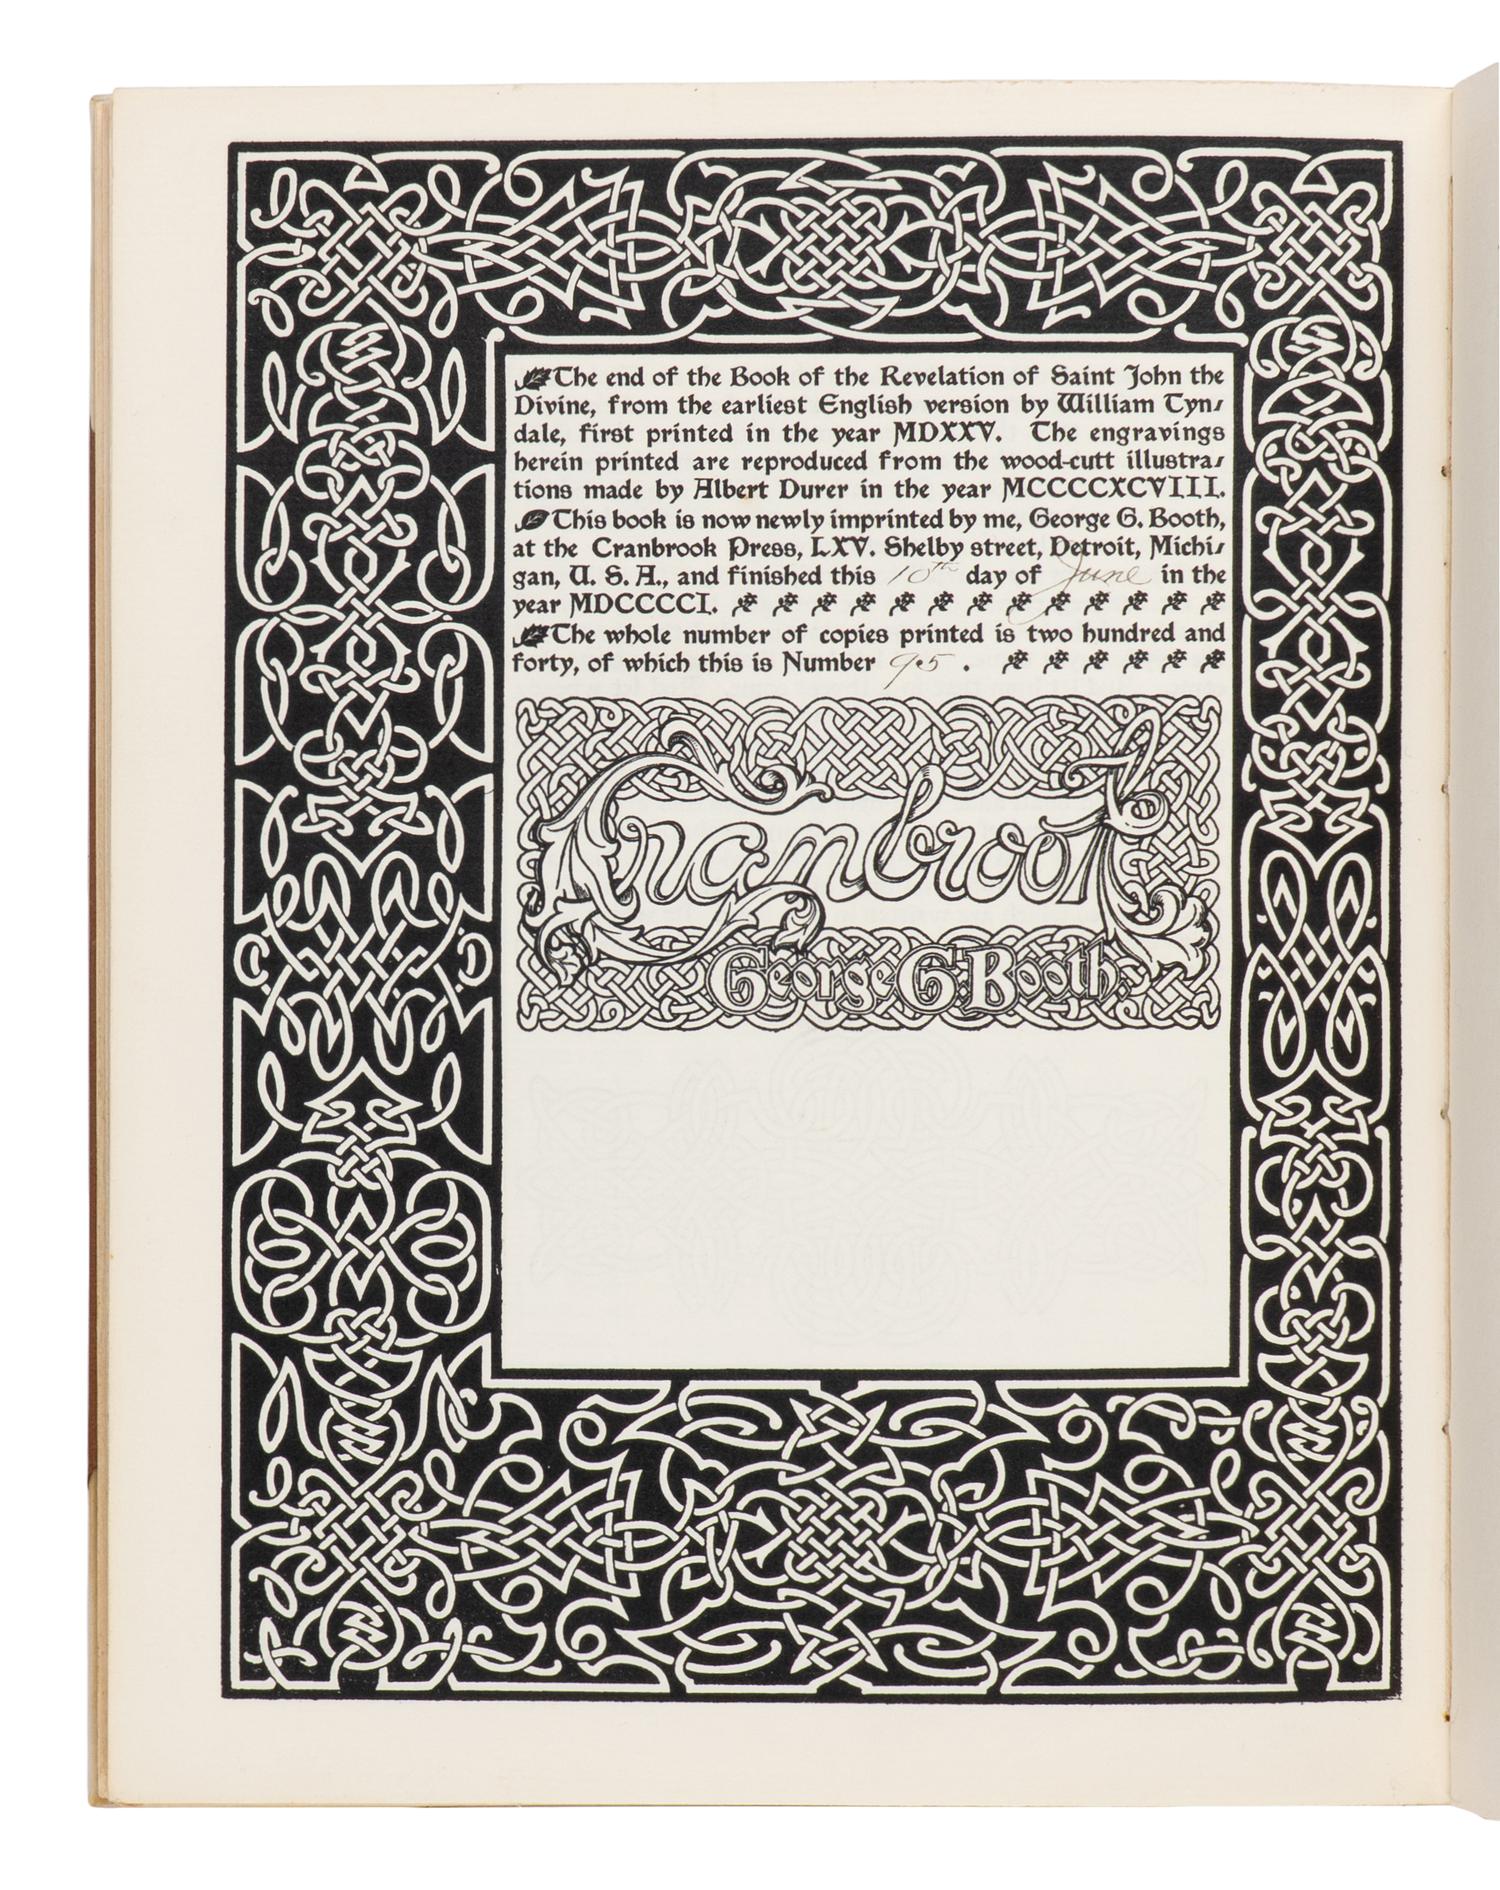 The end of the Book of the Revelation of Saint John the
Divine, from the earliest English version by William Tyn-
dale, first printed in the year MDXXV. The engravings
herein printed are reproduced from the wood-cutt illustra-
tions made by Albert Durer in the year MCCCCXCVIII.
This book is now newly imprinted by me, George G. Booth,
at the Cranbrook Press, LXV. Shelby street, Detroit, Michi-
gan, U. S. A., and finished this 10th day of June in the
year MDCCCCI.
The whole number of copies printed is two hundred and
forty, of which this is Number 95.
Cranbrook
George G. Booth.